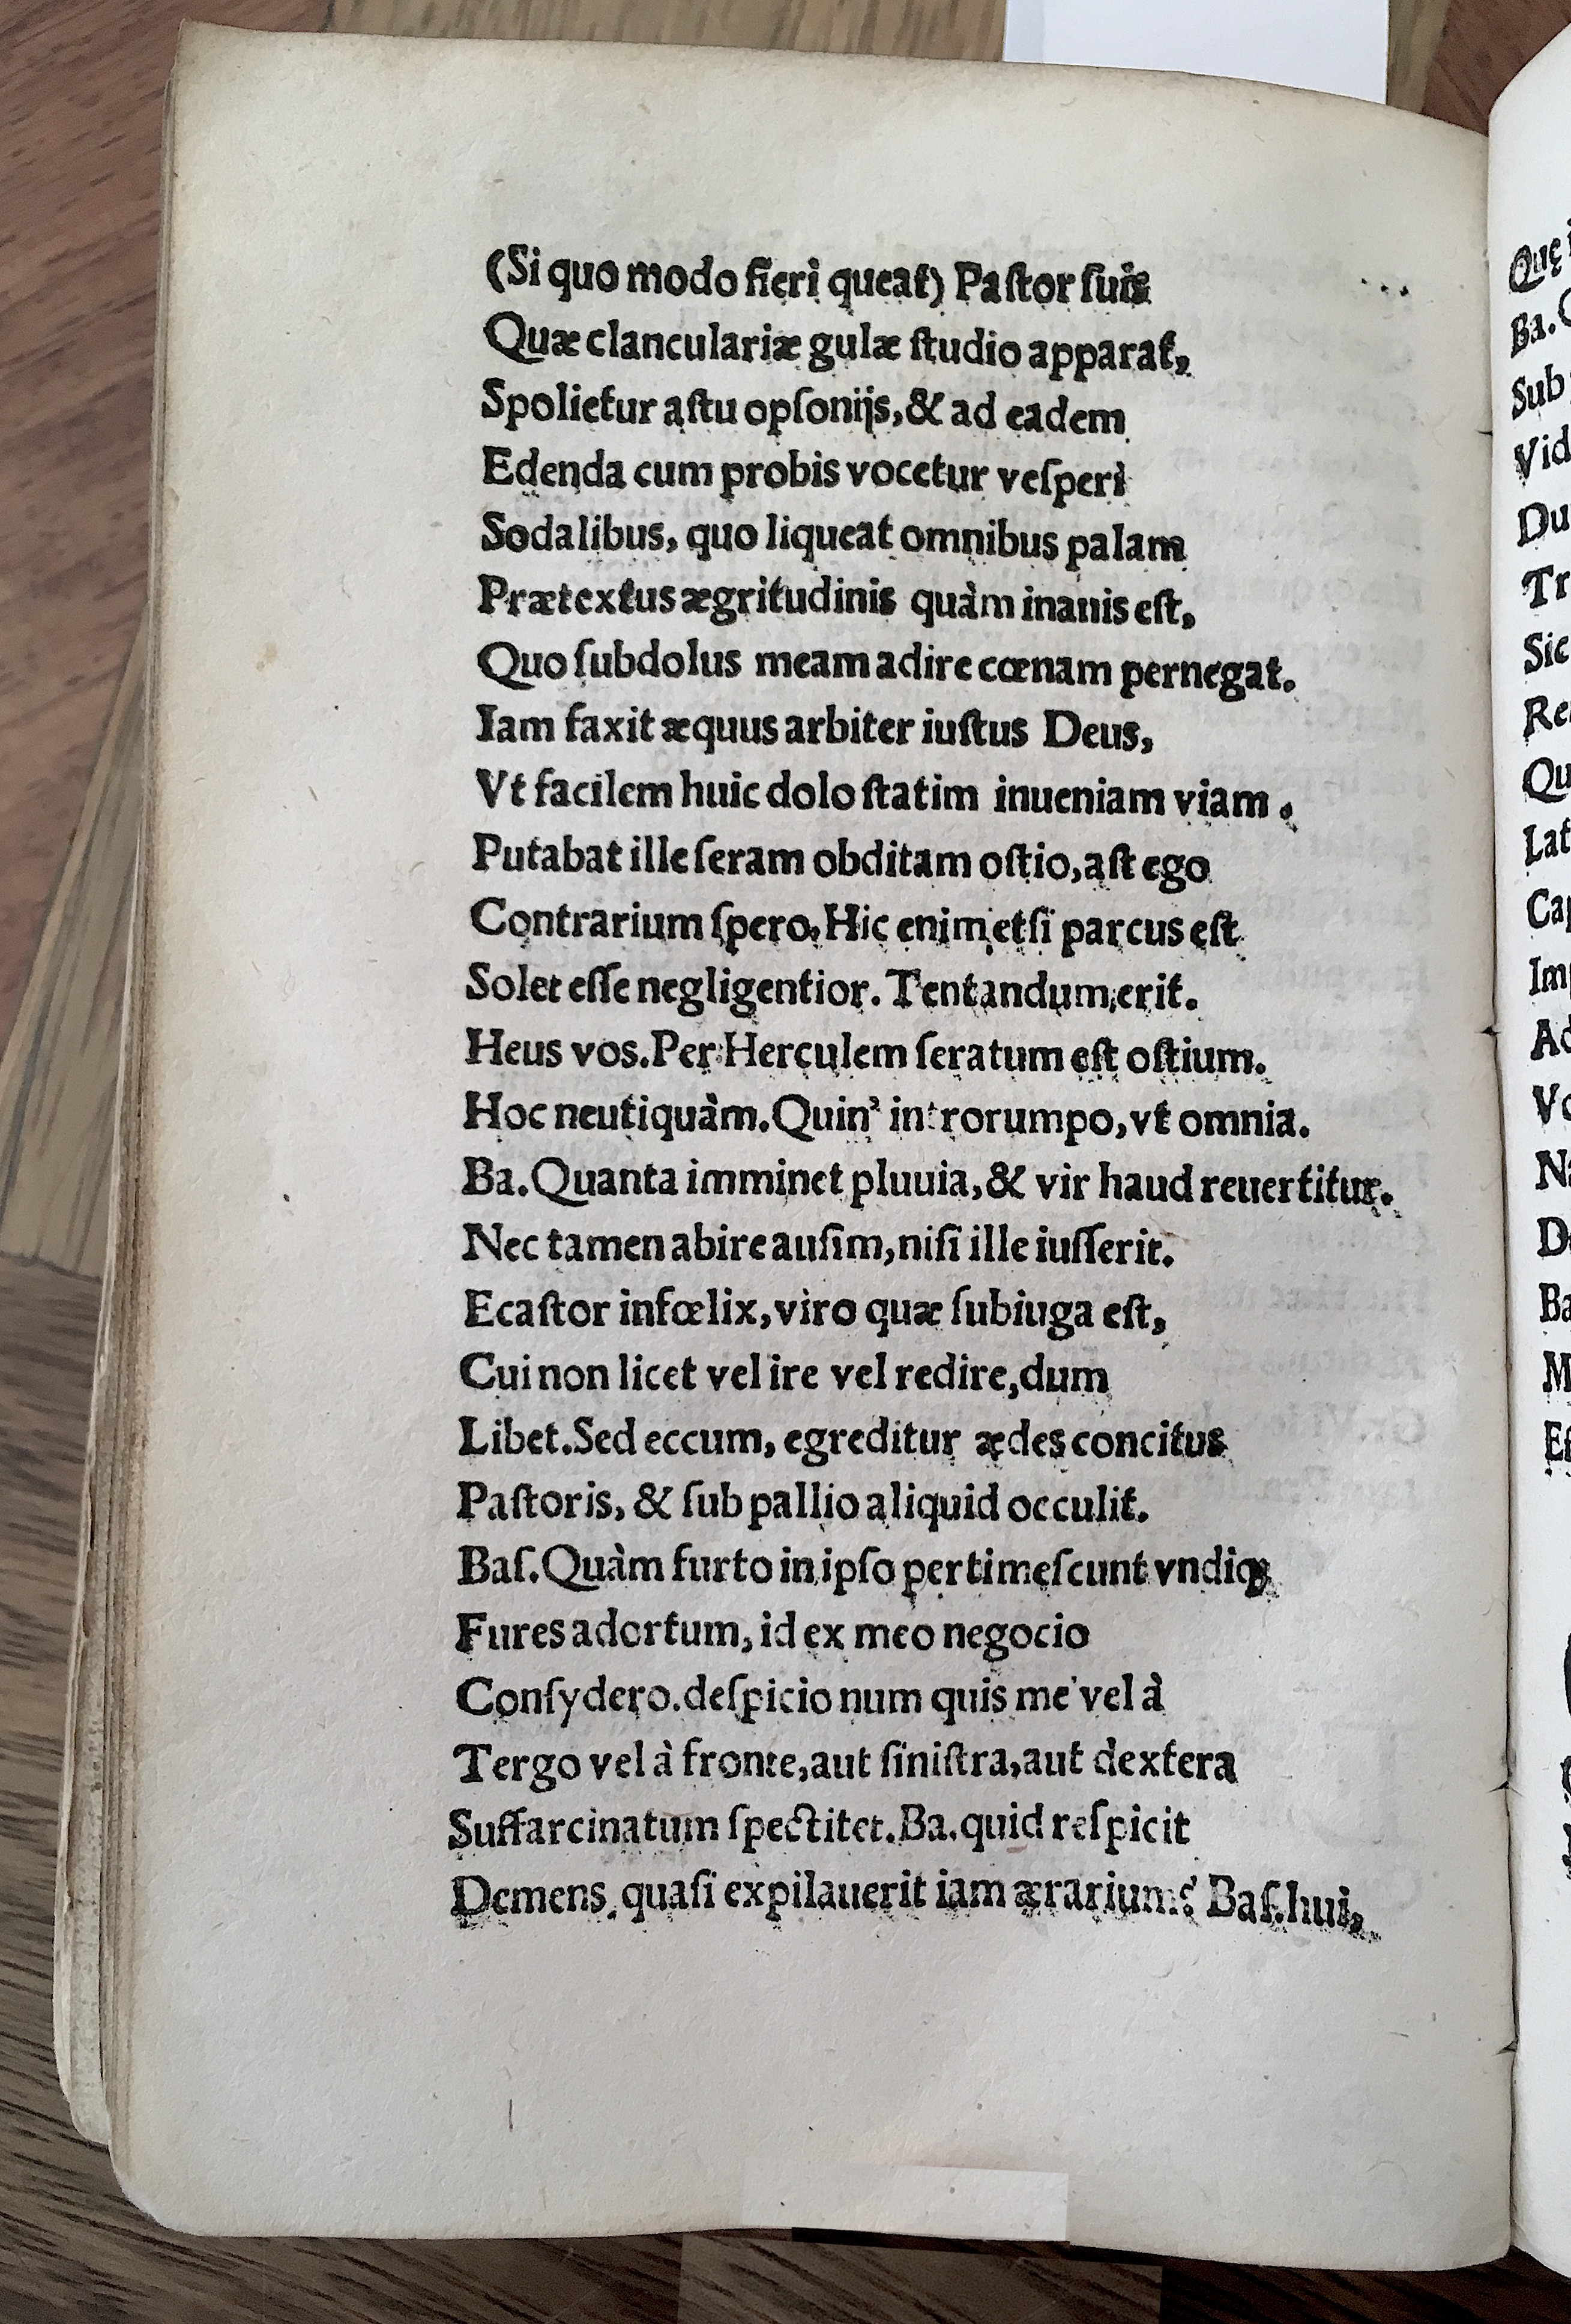 (Si quo modo fieri queat) Paſtor ſuis
Quæ clanculariæ gulæ ſtudio apparat,
Spolietur aſtu opſonijs, & ad eadem
Edenda cum probis vocetur veſperì
Sodalibus, quo liqueat omnibus palam
Prætextus ægritudinis quàm inanis eſt,
Quo ſubdolus meam adire cœnam pernegat.
Iam faxit æquus arbiter iuſtus Deus,
Vt facilem huic dolo ſtatim inueniam viam.
Putabat ille ſeram obditam oſtio, aſt ego
Contrarium ſpero, Hic enim etſi parcus eſt
Solet eſſe negligentior. Tentandum erit.
Heus vos. Per Herculem ſeratum eſt oſtium.
Hoc neutiquàm. Quin' introrumpo, vt omnia.
Ba. Quanta imminet pluuia, & vir haud reuertitur.
Nec tamen abire auſim, niſi ille iuſſerit.
Ecaſtor infœlix, viro quæ ſubiuga eſt,
Cui non licet vel ire vel redire, dum
Libet. Sed eccum, egreditur ædes concitus
Paſtoris, & ſub pallio aliquid occulit.
Baſ. Quàm furto in ipſo pertimeſcunt vndiqꝫ
Fures adortum, id ex meo negocio
Conſydero. deſpicio num quis me vel à
Tergo vel à fronte, aut ſiniſtra, aut dextera
Suffarcinatum ſpectitet. Ba. quid reſpicit
Demens, quaſi expilauerit iam ærarium? Baſ. hui,
Quę
Ba.
Sub
Vid
Du
Tr
Sic
Qu
Lat
Na
Ba